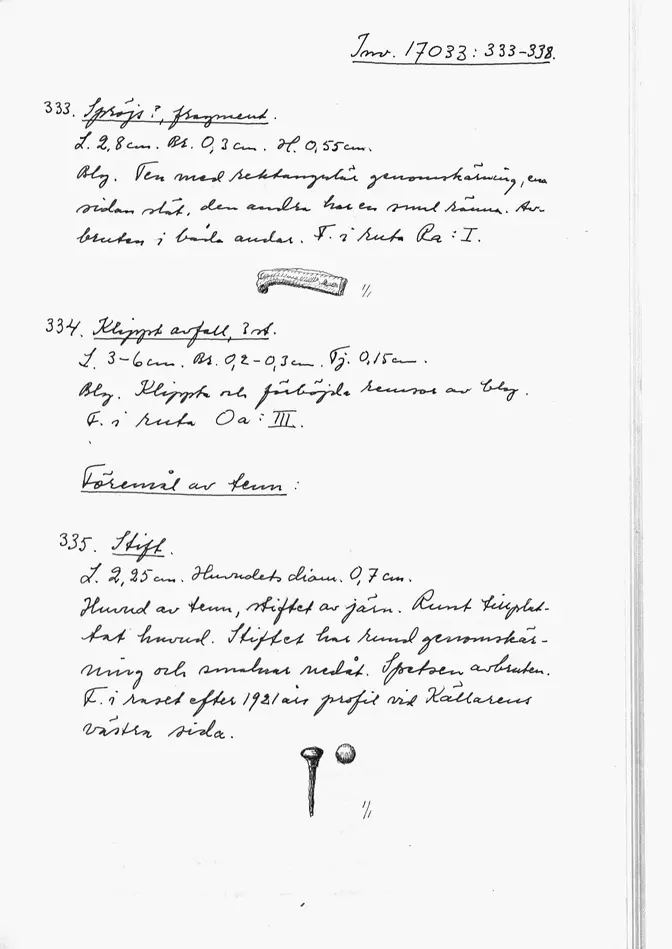 Inv. 17033:333-338.
333. Spröjs?, fragment.
L. 2,8 cm. Br. 0,3 cm. H. 0,55 cm.
Bly. Ten med rektangulär genomskärning, ena
sidan slät, den andra har en smal ränna. Av-
bruten i båda ändar. F. i ruta Ra:I.
1/1
334. Klippt avfall, 3 st.
L. 3-6 cm. Br. 0,2-0,3 cm. Tj. 0,15 cm.
Bly. Klippta och förböjda remsor av bly.
F. i ruta Oa:III.
Föremål av tenn:
335. Stift.
L. 2,25 cm. Huvudets diam. 0,7 cm.
Huvud av tenn, stiftet av järn. Runt tillplat-
tat huvud. Stiftet har rund genomskär-
ning och smalnar nedåt. Spetsen avbruten.
F. i raset efter 1921 års profil vid Källarens
västra sida.
1/1